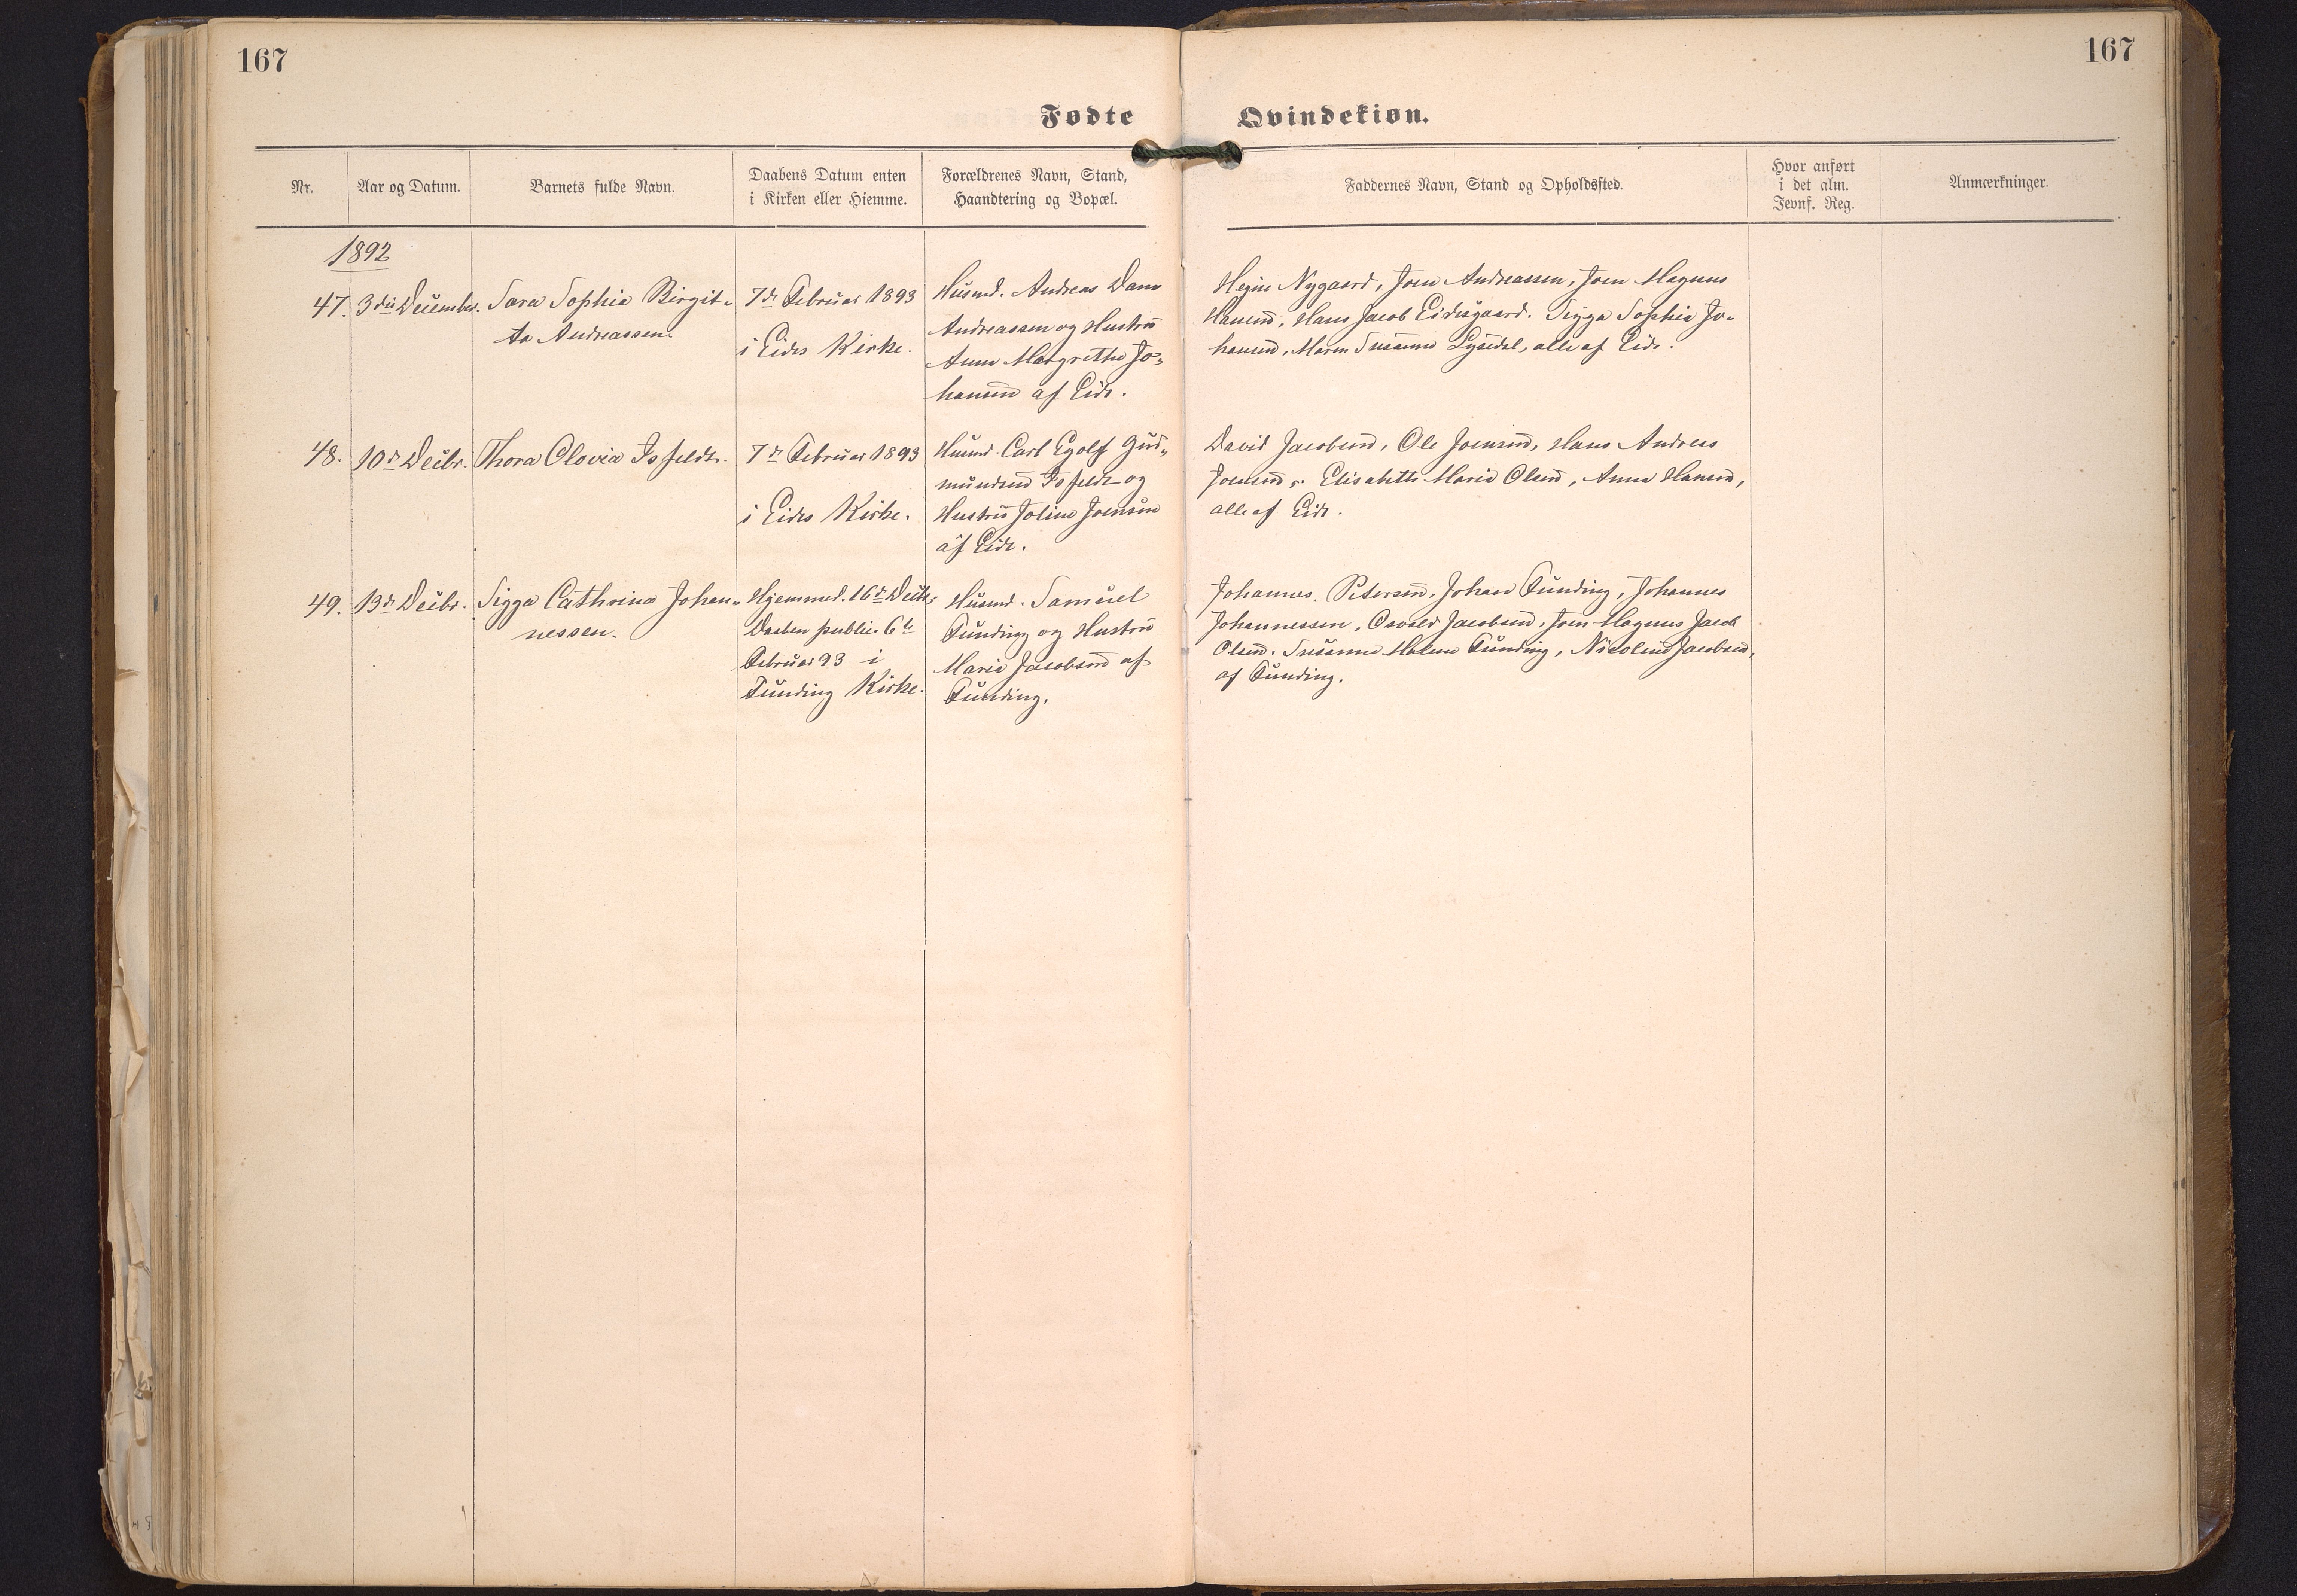 167
167
Fødte
Qvindekiøn.
Nr.
Aar og Datum.
Barnets fulde Navn.
Daabens Datum enten
i Kirken eller Hiemme.
Forældrenes Navn, Stand,
Haandtering og Bopæl.
Faddernes Navn, Stand og Opholdssted.
Hvor anført
i det alm.
Jevnf. Reg.
Anmærkninger.
1892
47.
3die December.
Sara Sophia Birgit-
ta Andreassen.
7de Februar 1893
i Eides Kirke.
Husmd. Andreas Dam
Andreassen og Hustru
Anna Margretha Jo-
hansen af Eide.
Nygaard, Joen Andreassen, Joen Magnus
Hansen, Hans Jacob Eidisgaard. Sigga Sophia Jo-
hansen, Maren Susanna Lysedal, alle af Eide.
48.
10de Decbr.
Thora Olovia Isfeldt.
7de Februar 1893
i Eides Kirke.
Husmd. Carl Egolf Gud-
mundsen Isfeldt og
Hustru Joline Joensen
af Eide.
David Jacobsen, Ole Joensen, Hans Andreas
Joensen. Elisabeth Maria Olsen, Anna Hansen,
alle af Eide.
49.
13de Decbr.
Sigga Cathrina Johan-
nessen.
Hjemmed. 16de Decbr.
Daaben public. 6te
Februar 93 i
Funding Kirke.
Husmd. Samuel
Funding og Hustru
Maria Jacobsen af
Funding.
Johannes Petersen, Johan Funding, Johannes
Johannessen, Osvald Jacobsen, Joen Magnus Jacob
Olsen. Susanna Malene Funding, Nicoline Jacobsen,
af Funding.